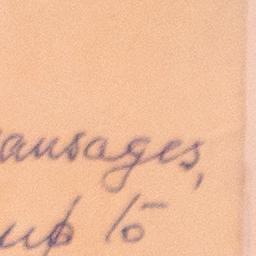 sausages,
up to